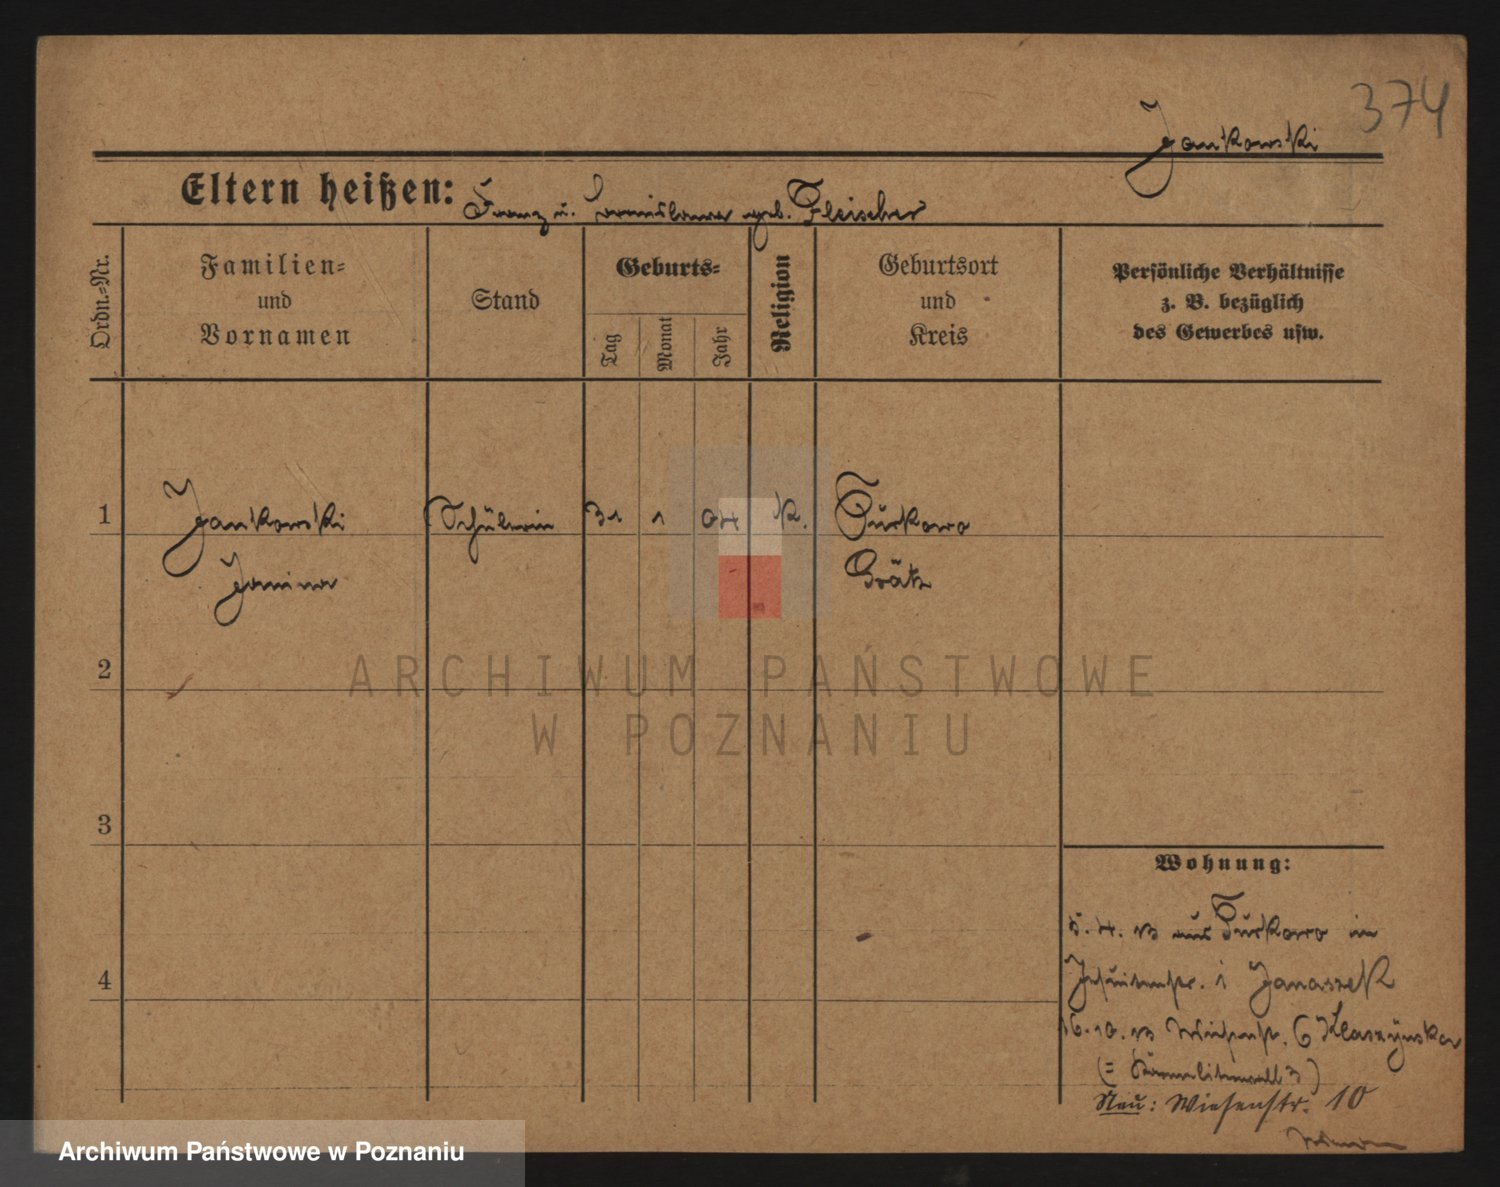 374
Jankowski
Eltern heißen: Franz u. geb. Fleischer
Ordn.-Nr.
Familien-
und
Vornamen
Stand
Geburts-
Tag
Monat
Jahr
Religion
Geburtsort
und
Kreis
Persönliche Verhältnisse
z. B. bezüglich
des Gewerbes usw.
1
Jankowski Schülerin 31 1 04 K. Turkowo
Janina Grätz
2
ARCHIWUM PAŃSTWOWE
W POZNANIU
3
4
Wohnung:
5. 4. 13 aus Turkowo in
Jesuitenstr. Janaszek
16. 10. 13 Wiesenstr. 6
Neu: Wiesenstr. 10
Archiwum Państwowe w Poznaniu